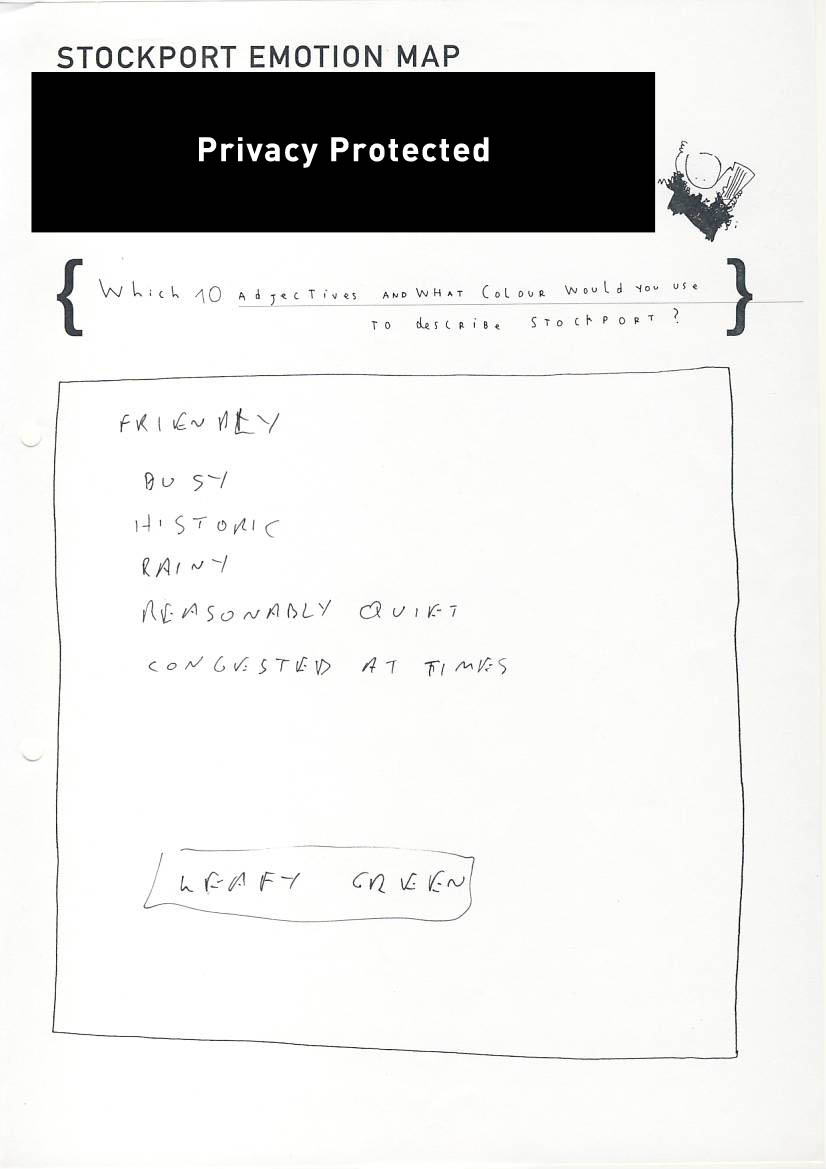 STOCKPORT EMOTION MAP
Privacy Protected
Which 10 AdjecTives AND WHAT COLOUR Would you use
TO descRiBe STOCKPORT?
FRIENDLY
BUSY
HISTORIC
RAINY
REASONABLY QUIET
CONGESTED AT TIMES
LEAFY GREEN